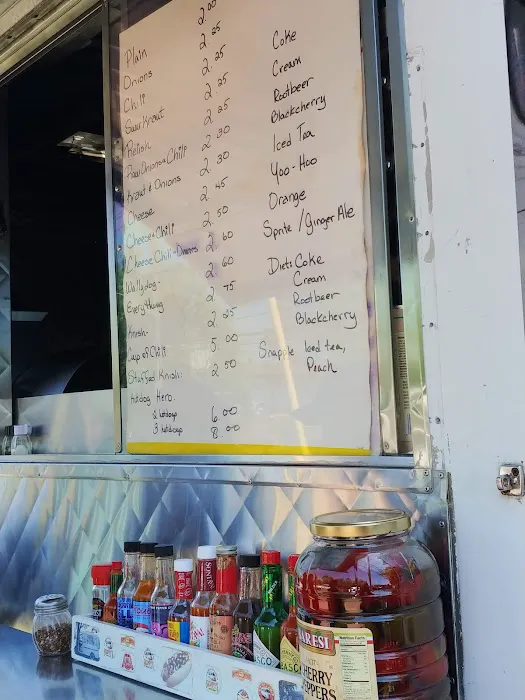 Plain 2.00
Onions 2.25
Chili 2.25
Saurkraut 2.25
Relish 2.25
Raw Onions + Chili 2.30
Kraut + Onions 2.30
Cheese 2.45
Cheese + Chili 2.50
Cheese Chili - Onions 2.60
Wally dog - 2.60
Everything 2.75
Knish - 2.25
Cup of Chili 5.00
Stuffed Knish: 2.50
Hotdog Hero.
2 hotdogs 6.00
3 hotdogs 8.00
Coke
Cream
Rootbeer
Blackcherry
Iced Tea
Yoo-Hoo
Orange
Sprite / Ginger Ale
Diet: Coke
Cream
Rootbeer
Blackcherry
Snapple Iced tea,
Peach